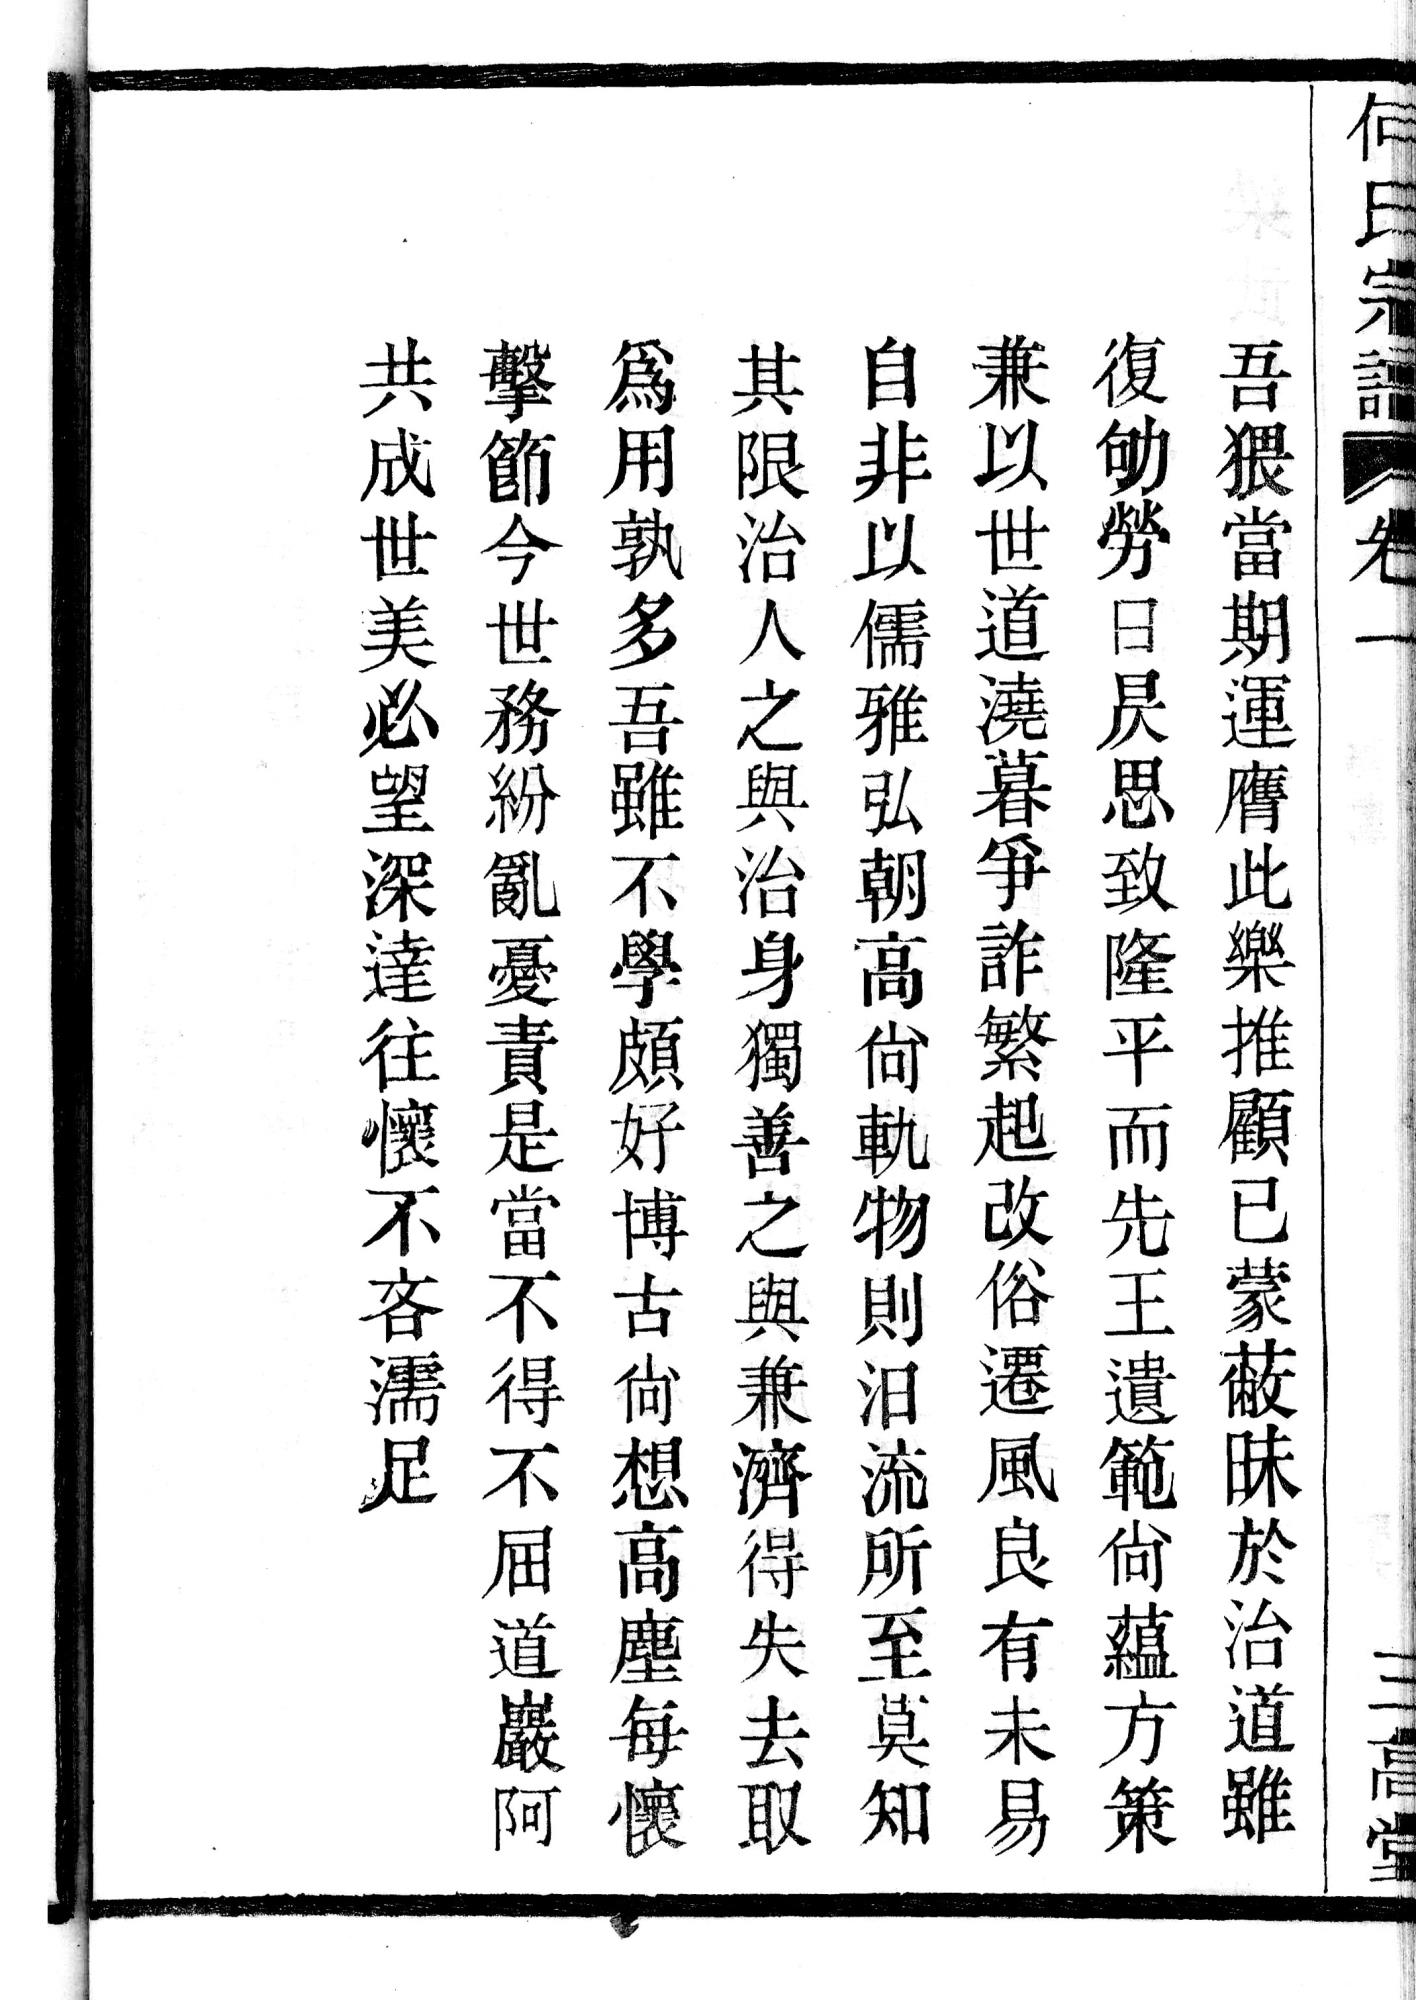 何氏宗譜 卷一 三高堂
吾猥當期運膺此樂推顧已蒙蔽昧於治道雖
復劬勞日昃思致隆平而先王遺範尙蘊方策
兼以世道澆暮爭詐繁起改俗遷風良有未易
自非以儒雅弘朝高尙軌物則汨流所至莫知
其限治人之與治身獨善之與兼濟得失去取
爲用孰多吾雖不學頗好博古尙想高塵每懷
擊節今世務紛亂憂責是當不得不屈道巖阿
共成世美必望深達往懷不吝濡足